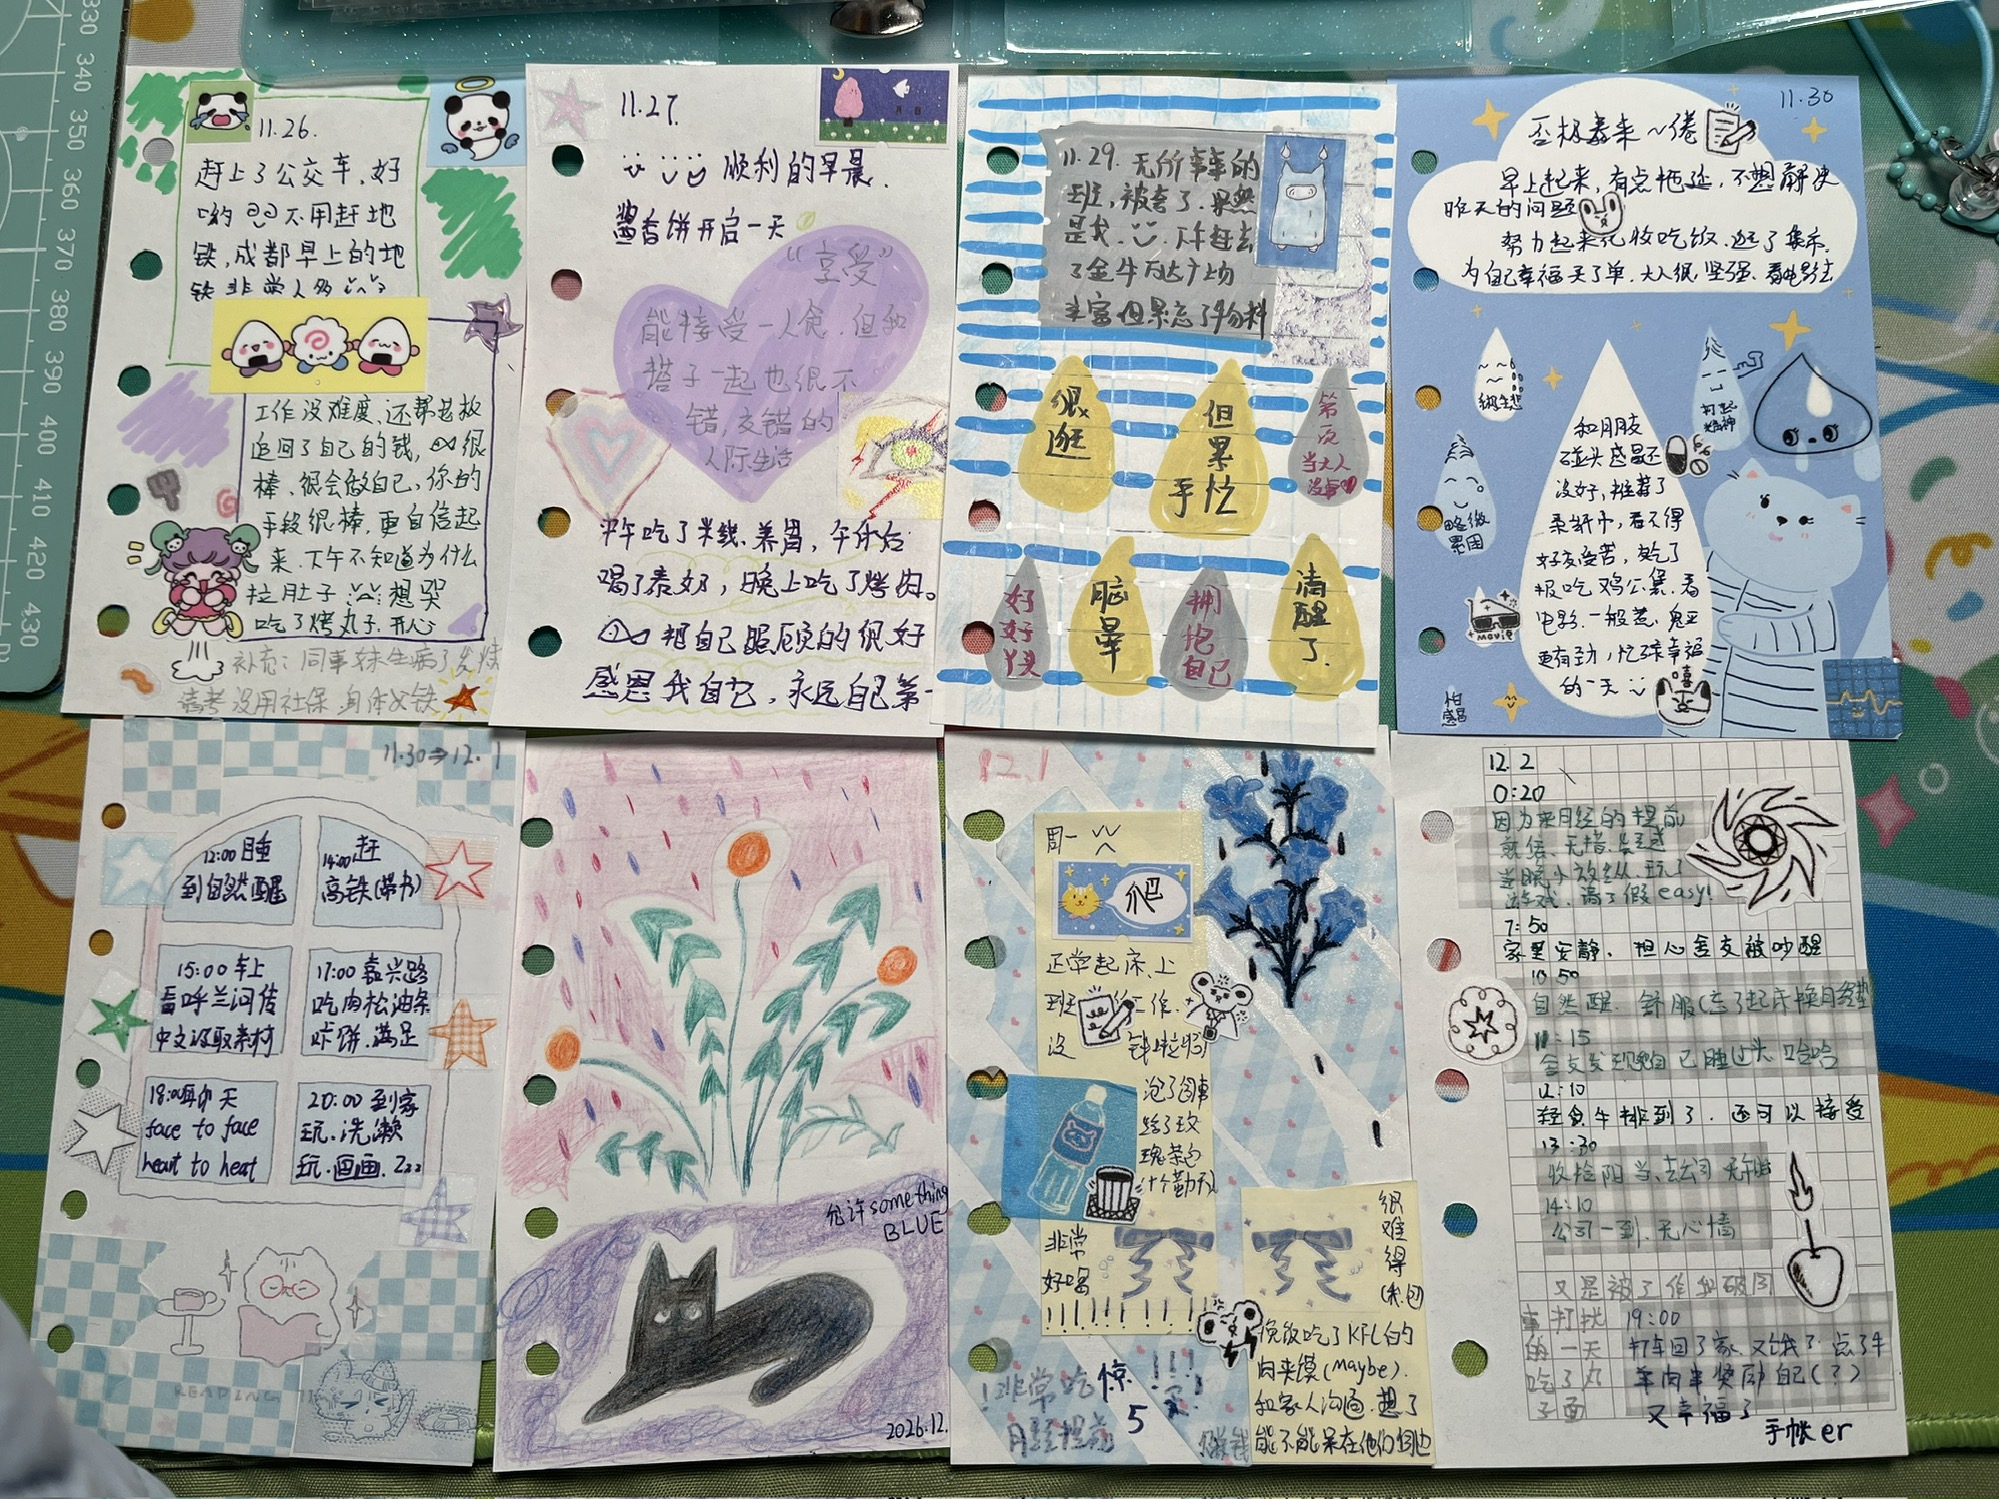 11.26.
赶上了公交车、好
哟 不用赶地
铁,成都早上的地
铁非常人多
工作没难度、还帮老板
追回了自己的钱, 很
棒、很会做自己,你的
手段很棒,更自信起
来、下午不知道为什么
拉肚子 想哭
吃了烤丸子.开心
补充:同事妹生病了
没用社保.身体
11.27.
顺利的早晨.
酱香饼开启一天
“享受”
能接受一人食.但和
搭子一起也很不
错,交错的
人际生活
中午吃了米线.养胃,午休后
喝了泰奶,晚上吃了烤肉。
把自己照顾的很好
感恩我自己,永远自己第一
11.29.无所事事的
班,被夸了.果然
是我. 下午赶去
了金牛万达广场
丰富但累忘了物料
很
逛
但
累
忙
手
第
一
当大人
没事
好
好
笑
脑
晕
拥
抱
自己
清
醒
了.
11.30
否极泰来~倦
早上起来,有点拖延,不想解决
昨天的问题
努力起来化妆吃饭.逛了集市.
为自己幸福买了单.大人很坚强、看电影去
打起
精神
略微
累困
和朋友
碰头感冒还
没好,推荐了
柔纸巾,看不得
好友受苦,又吃了
报吃鸡公煲.看
电影.一般菜.
更有劲,忙碌幸福
的一天
MOVIE
怕
感冒
嘻
11.30⇒12.1
12:00睡
到自然醒
14:00赶
高铁(带书)
15:00车上
看呼兰河传
中文汲取素材
17:00嘉兴路
吃肉松油条
咔饼.满足
18:00聊天
face to face
heart to heat
20:00到家
玩.洗漱
玩.画画.Zzz
READING
允许something
BLUE
2026.12.
12.1
周一
爬
正常起床、上
班 工作.
没 钱啦
泡了同事
给了玫
瑰茶包
非常
好喝
!!!!!!!!!!!
很
难
得
晚饭吃了KFC的
肉夹馍(Maybe).
和家人沟通.想了
能不能呆在他们身边
!非常吃惊!!!
月经提前5天
12.2
0:20
因为来月经的提前
就偌、无措、
当晚小放纵.玩了
游戏.请了假easy!
7:50
家里安静、担心室友被吵醒
10:50
自然醒.舒服(忘了起床换月经垫
11:15
室友发现我自己睡过头 哈哈
12:10
轻食牛排到了.还可以接受
13:30
收捡阳当、去公司
14:10
公司一到.无心情
又是被工作
打扰
的一天
吃了丸
子面
19:00
打车回了家.又饿了.点了牛
羊肉串奖励自己(?)
又幸福了
手帐er